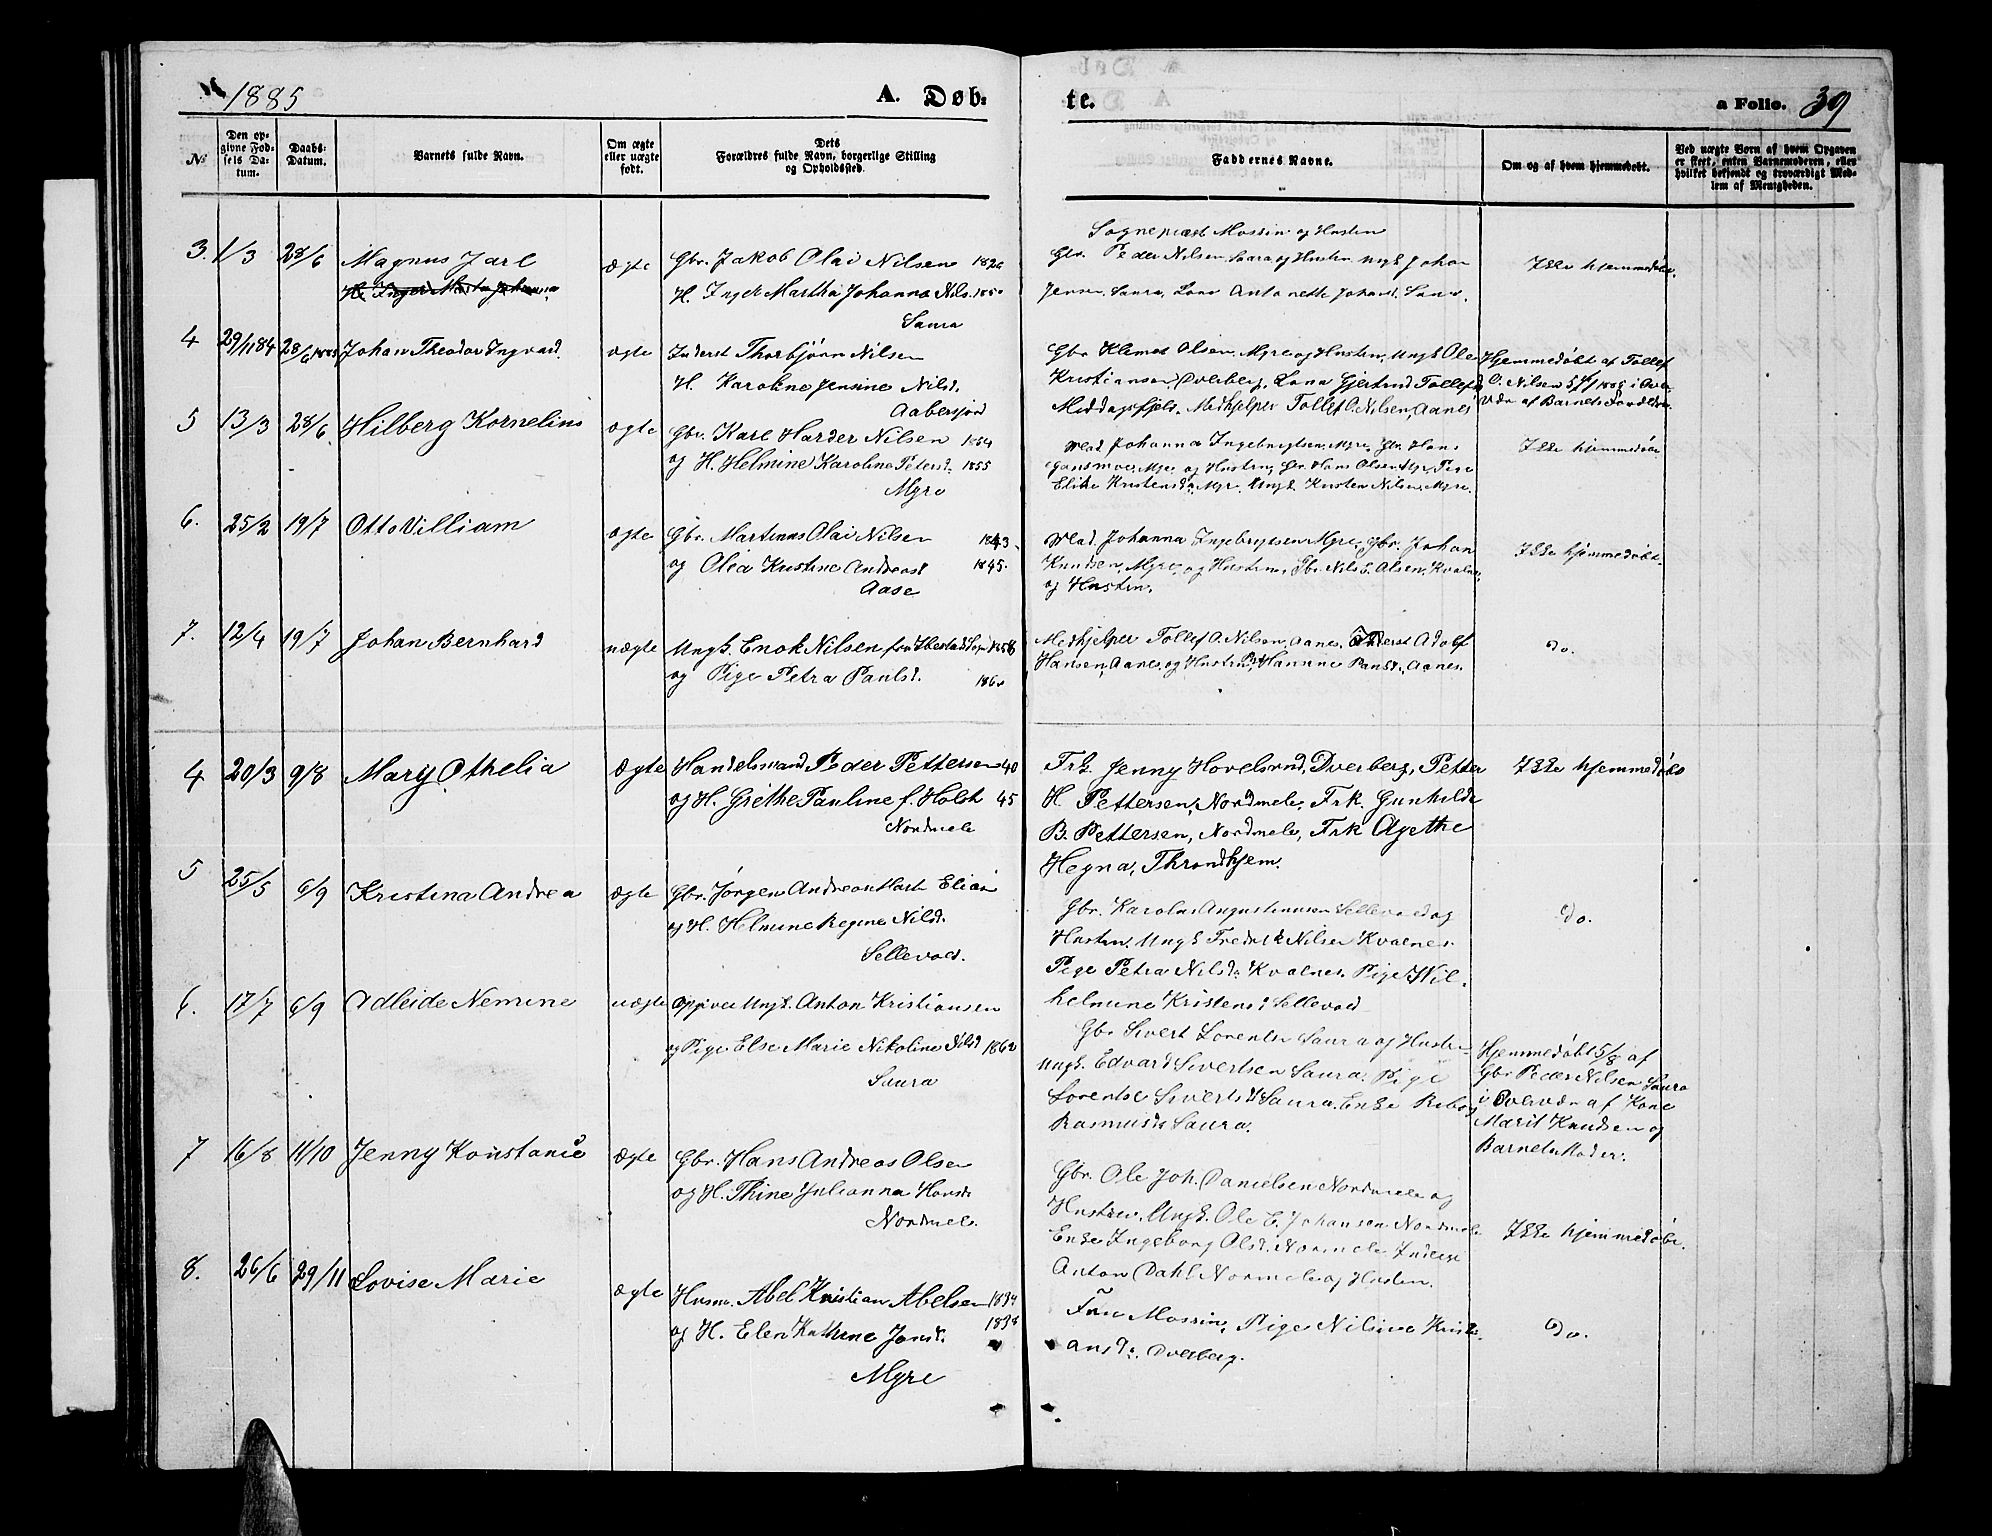 1885
A. Døb-
te.
a Folio. 39
№
Den op-
givne Fød-
sels Da-
tum.
Daabs-
Datum.
Varnets fulde Navn.
Om ægte
eller uægte
født.
Dets
Forældres fulde Navn, borgerlige Stilling
og Opholdssted.
Faddernes Navne.
Om og af hvem hjemmedøbt.
Ved uægte Børn af hvem Opgaven
er skeet, enten Barnemoderen, eller
hvilket bekjendt og troværdigt Med-
lem af Menigheden.
3. 1/3 28/6 Magnus Jarl ægte Gbr. Jakob Olai Nilsen
H. Inger Martha Johanna
H. Inger Martha Johanna Nils.
Saura
Sogneprest Mossin og Hustru
Gbr. Peder Nilsen, Saura og Hustru, Ungk Johan
Jensen, Saura, Kona Antonette Johansd. Saura.
Ikke hjemmedøbt.
4 29/11 84 28/6 1885 Johan Theodor Ingvard. ægte Inderst Thorbjørn Nilsen
H. Karoline Jensine Nilsd.
Aabersjord
Gbr Klemet Olsen, Myre og Hustru, Ungk Ole
Kristiansen, Dverberg, Kona Gjertrud Tollefsd
Meddagsfjeld. Medhjelper Tollef O. Nilsen, Aanes
Hjemmedøbt af Tollef
O. Nilsen 5/1 1885 i Over-
Vær af Barnets Forældre.
5 13/3 28/6. Hilberg Kornelius ægte Gbr. Karl Harder Nilsen 1854
og H. Helmine Karoline Petersd. 1855
Myre
Mad. Johanna Ingebrigtsen, Myre, Gbr. Hans
Myre og Hustru, Gbr. Hans Olsen Myre, Pige
Elike Kristensd. Myre. Ungk. Kristen Nilsen, Myre.
Ikke hjemmedøbt
6. 25/2 19/7 Otto Villiam ægte Gbr. Martinus Olai Nilsen 1843.
og Olea Kristine Andreasd 1845.
Aase
Mad. Johanna Ingebrigtsen Myre, Gbr. Johan
Knudsen, Myre, og Hustru, Gbr. Nils E. Olsen, Kvalnes
og Hustru.
Ikke hjemmedøbt.
7. 12/4 19/7 Johan Bernhard uægte Ungk. Enok Nilsen fra Ibestad Sogn
og Pige Petra Paulsd.
Medhjelper Tollef O. Nilsen, Aanes, Inderst Adolf
Hansen, Aanes, og Hustru, Hanine Paulsd., Aanes.
do.
4 20/3 9/8 Mary Othelia Ægte Handelsmand Peder Pettersen 40
og H. Grethe Pauline f. Holst 45
Nordmele
Frk. Jenny Hovelsrud, Dverberg, Petter
H. Pettersen, Nordmele, Frk. Gunhilde
B. Pettersen, Nordmele, Frk Agethe
Hegna, Throndhjem.
Ikke hjemmedøbt
5 25/5 6/9 Kristina Andrea ægte Gbr. Jørgen Andreas Mart. Elias
og H. Helmine Regine Nilsd.
Sellevold.
Gbr. Karolus Augustinusen Sellevold og
Hustru, Ungk Fredrik Nilsen Kvalnes.
Pige Petra Nilsd. Kvalnes. Pige Wil-
helmine Kristensd. Sellevold
do.
6. 17/7 6/9 Adleide Nemine uægte Opgivet Ungk. Anton Kristiansen
og Pige Else Marie Nikoline Nilsd 1862
Saura
Gbr Sivert Lorents. Saura og Hustru
Ungk. Edvard Sivertsen Saura. Pige
Lorentse Sivertsd Saura. Enke
Rasmusd. Saura.
Hjemmedøbt 5/8 af
Gbr Peder Nilsen Saura
i Overvær af Kone
Marit Knudsen og
Barnets Moder.
7 16/8 11/10 Jenny Konstance Ægte Gbr. Hans Andreas Olsen
og H. Thine Julianna Hansd.
Nordmele.
Gbr. Ole Joh. Danielsen Nordmele og
Hustru, Ungk. Ole E. Johansen Nordmele
Enke Ingeborg Olsd. Normele Inderst
Anton Dahl Normele og Hustru.
Ikke hjemmedøbt.
8. 26/6 29/11 Lovise Marie ægte Husm. Abel Kristian Abelsen 1834
og H. Elen Kathrine Jonsd. 1838
Myre
Fru Mossin, Pige Nilsine Kristi-
ansd., Dverberg.
do.